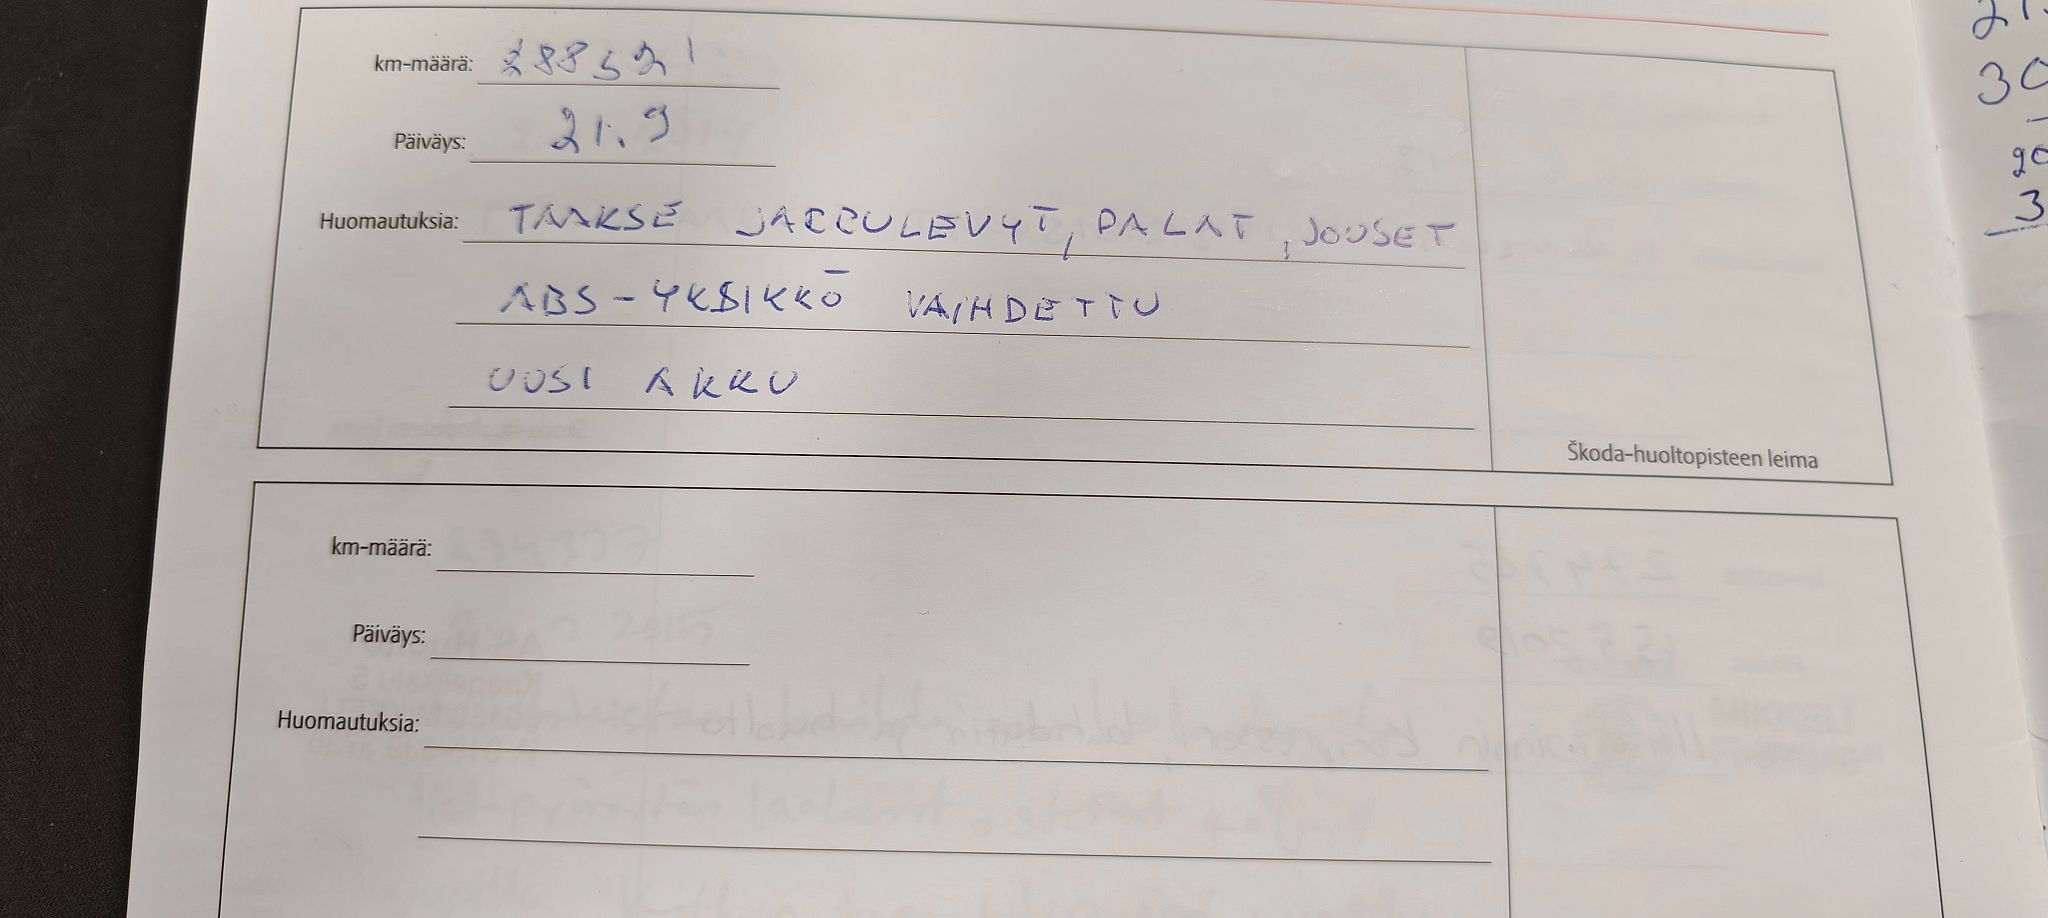 km-määrä: 288521
Päiväys: 21.9
Huomautuksia: TAAKSE JARRULEVYT, PALAT, JOUSET
ABS-YKSIKKÖ VAIHDETTU
UUSI AKKU
Škoda-huoltopisteen leima
km-määrä:
Päiväys:
Huomautuksia: